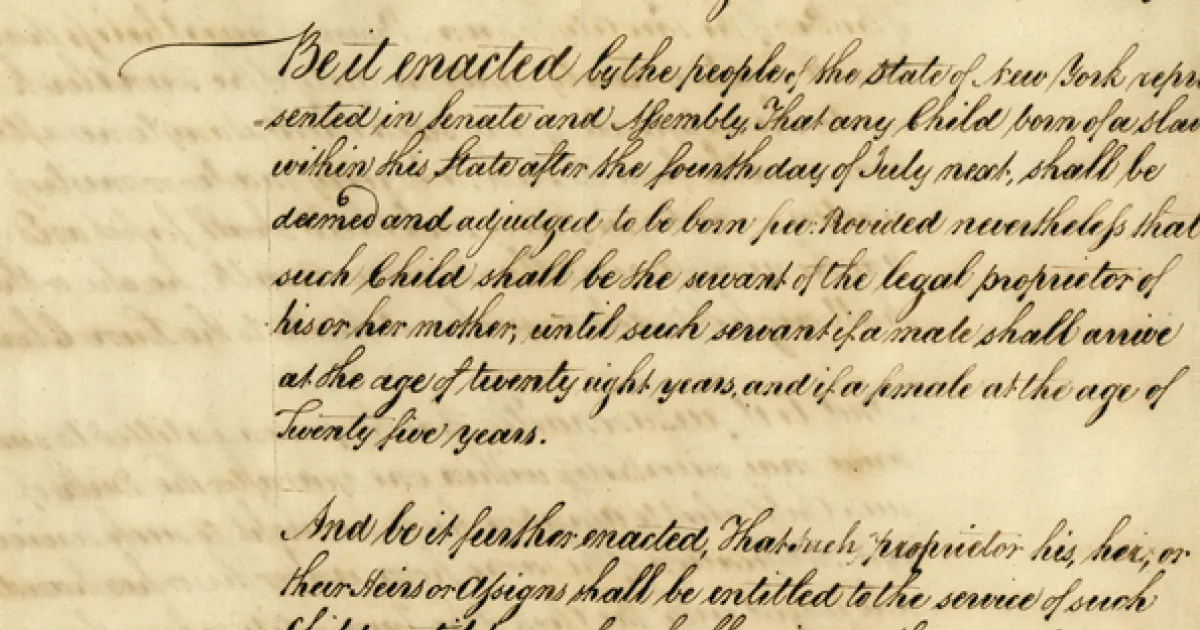 Be it enacted by the people of the State of New York repre
=sented in Senate and Assembly, That any Child born of a slav
within this State after the fourth day of July next, shall be
deemed and adjudged to be born free: Provided nevertheless that
such Child shall be the servant of the legal proprietor of
his or her mother, until such servant if a male shall arrive
at the age of twenty eight years, and if a female at the age of
Twenty five years.
And be it further enacted, That such proprietor his, her, or
their Heirs or Assigns shall be entitled to the service of such